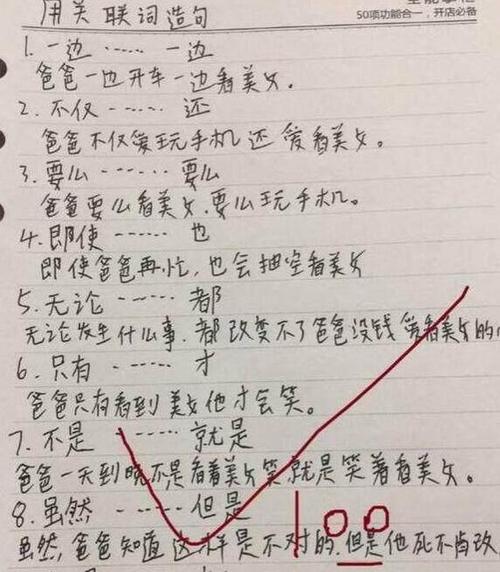 用关联词造句
50项功能合一，开店必备
1. 一边 …… 一边
爸爸一边开车一边看美女。
2. 不仅 …… 还
爸爸不仅爱玩手机还爱看美女。
3. 要么 …… 要么
爸爸要么看美女.要么玩手机。
4. 即使 …… 也
即使爸爸再忙，也会抽空看美女
5. 无论 …… 都
无论发生什么事.都改变不了爸爸没钱爱看美女的
6. 只有 …… 才
爸爸只有看到美女他才会笑。
7. 不是 …… 就是
爸爸一天到晚不是看着美女笑就是笑着看美女。
8. 虽然 …… 但是
虽然,爸爸知道这样是不对的.但是他死不肯改
100